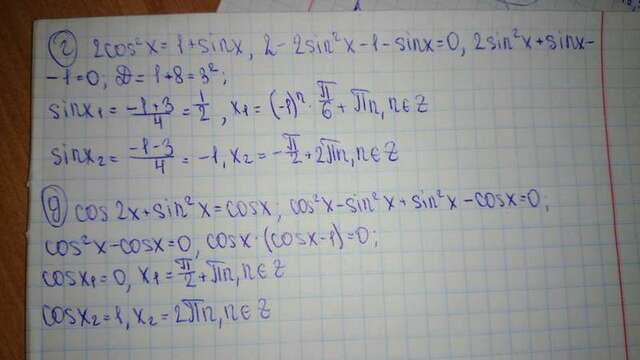 г) 2cos²x=1+sinx, 2-2sin²x-1-sinx=0, 2sin²x+sinx-
-1=0; D=1+8=3²;
sinx₁=(-1+3)/4=1/2, x₁=(-1)ⁿ·π/6+πn, n∈Z
sinx₂=(-1-3)/4=-1, x₂=-π/2+2πn, n∈Z
g) cos2x+sin²x=cosx, cos²x-sin²x+sin²x-cosx=0;
cos²x-cosx=0, cosx·(cosx-1)=0;
cosx₁=0, x₁=π/2+πn, n∈Z
cosx₂=1, x₂=2πn, n∈Z